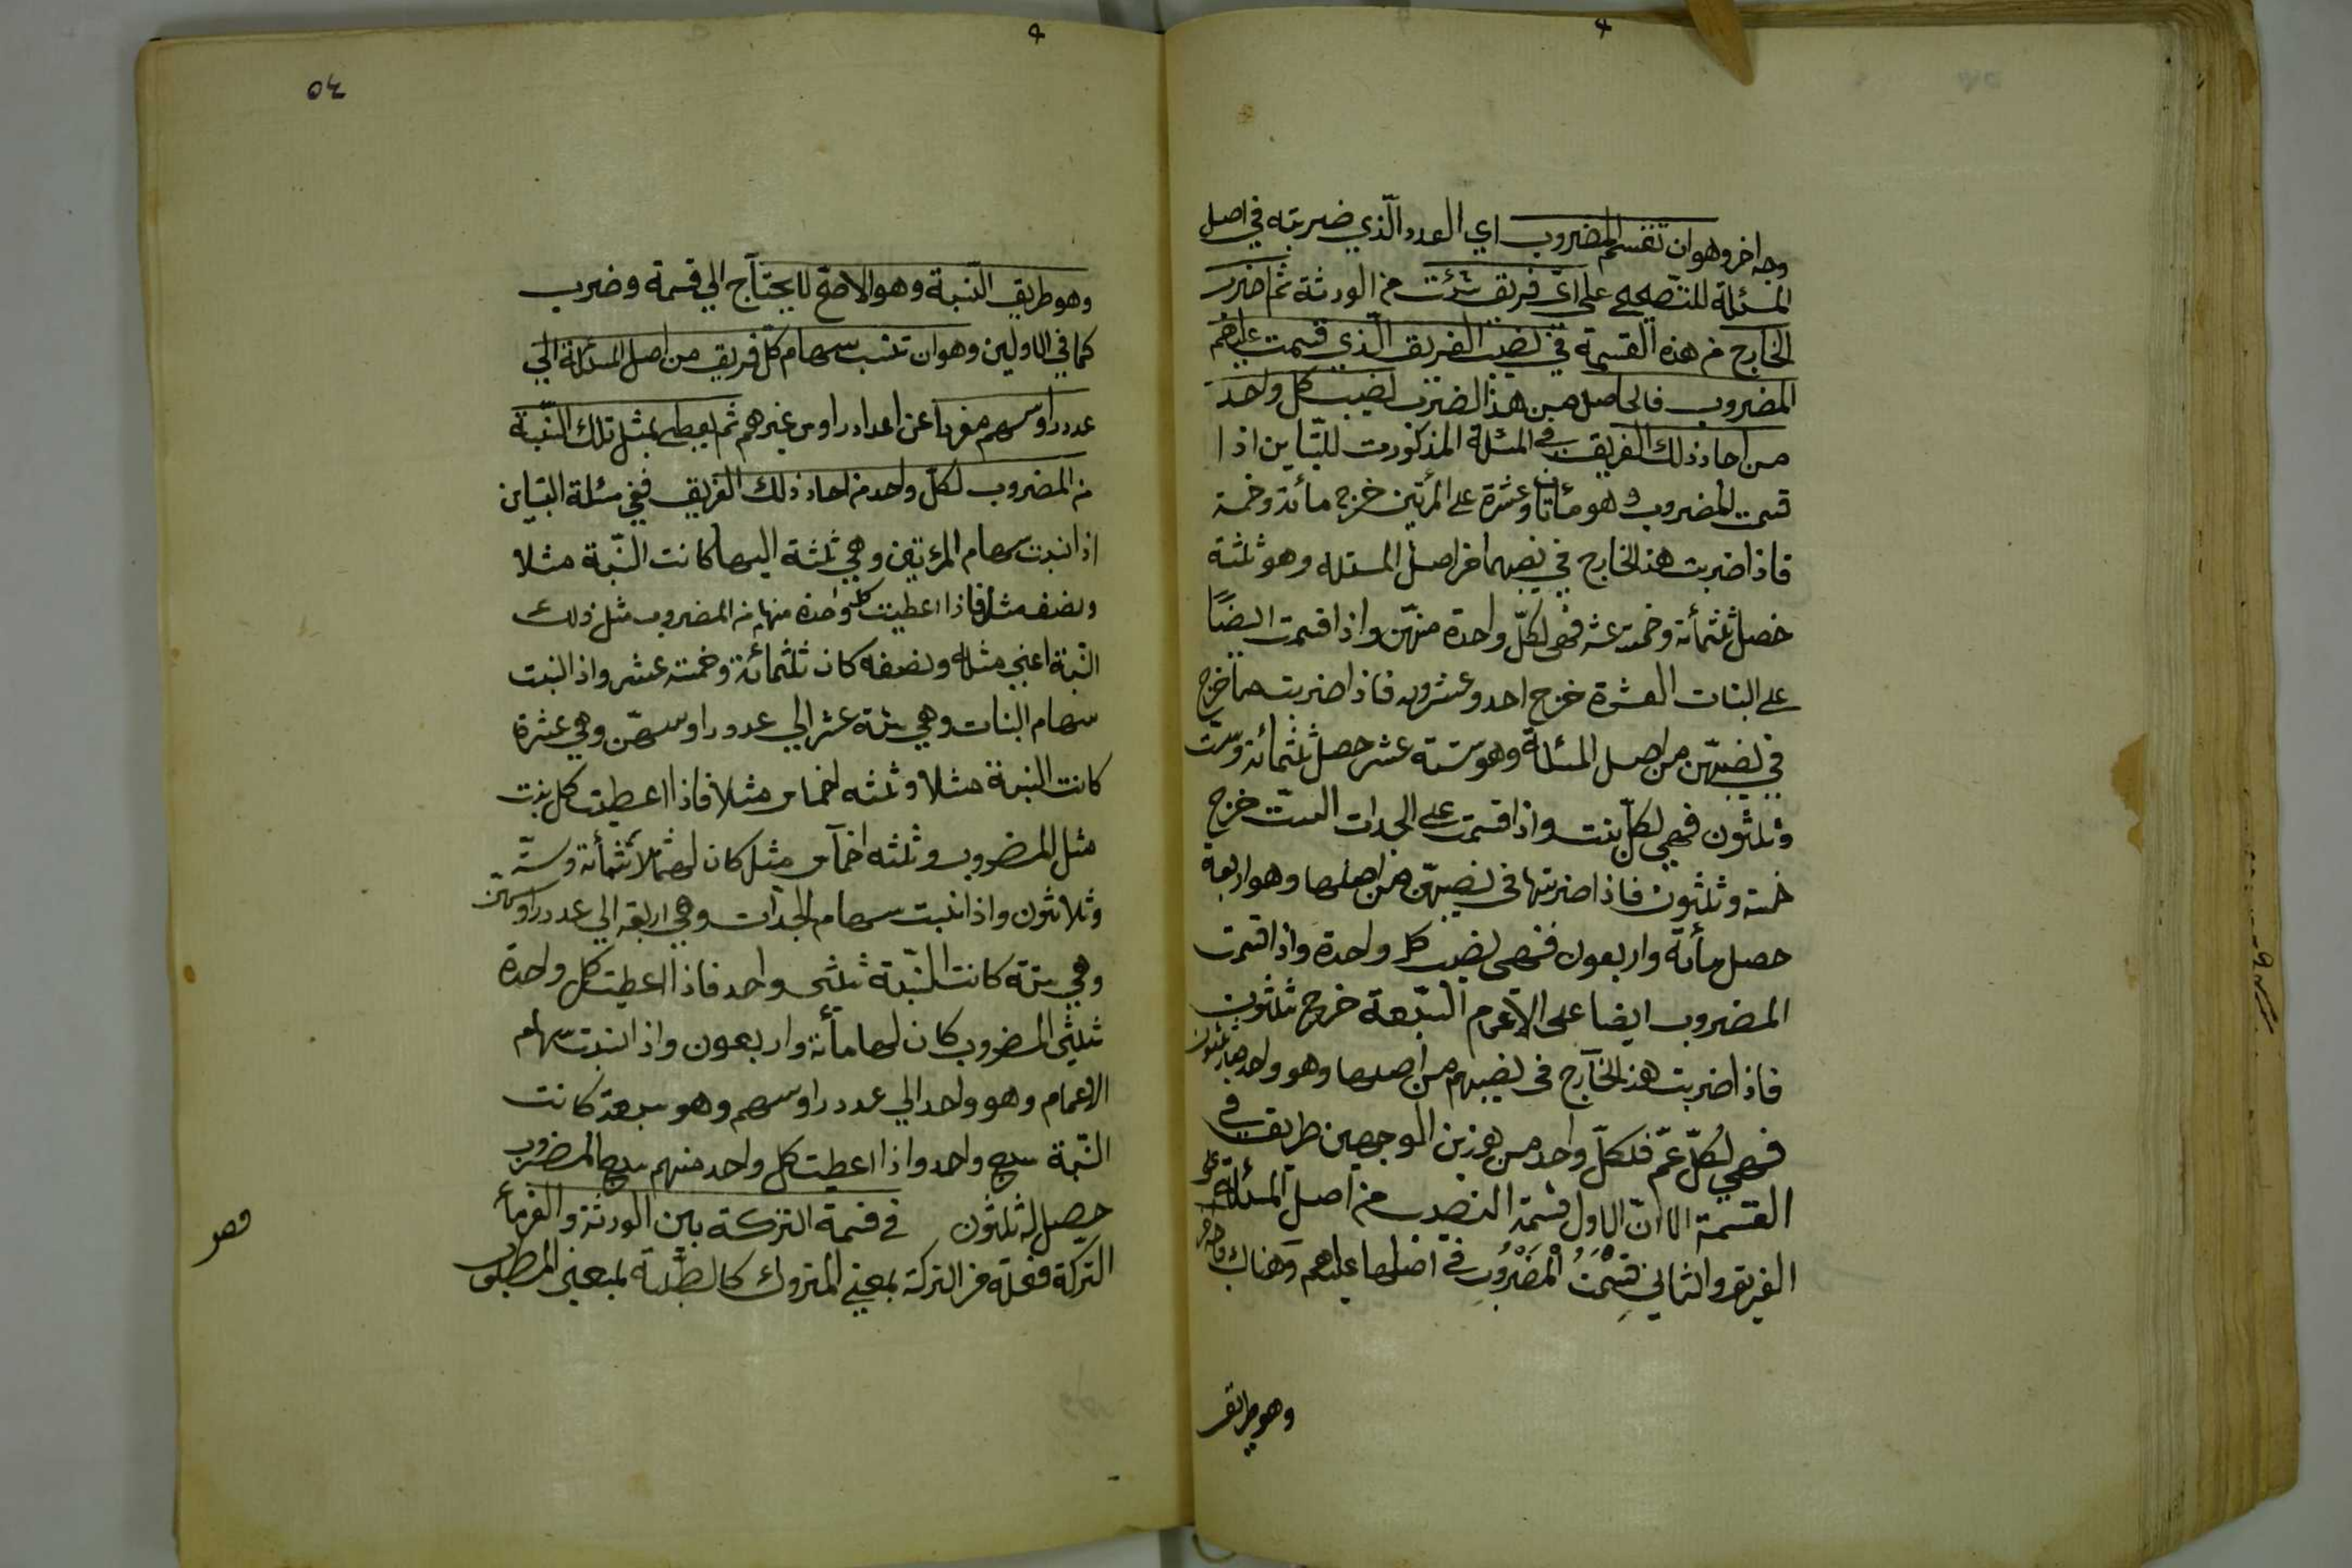 وجه اخر وهو ان تقسم المضروب اي العدد الّذي ضربته في اصل
المسئلة للتصحيح على ايّ فريق شئت من الورثة ثم اضرب
الخارج من هذه القسمة في نصيب الفريق الّذي قسمت عليهم
المضروب فالحاصل من هذا الضرب نصيب كل واحد
من احاد ذلك الفريق ففي المسئلة المذكورت للتّباين اذا
قسمت المضروب وهو مأتان وعشرة على المرئتين خرج مائة وخمسة
فاذا ضربت هذ الخارج في نصيبهما من اصل المسئله وهو ثلثة
حصل ثلثمأئة وخمسة عشر فهي لكلّ واحدة منهّن واذا قسمت ايضًا
على البنات العشرة خرج احد وعشرون فاذا ضربت ما خرج
في نصيبهّن من اصل المسئلة وهو ستة عشر حصل ثلثمائة وستّ
وثلثون فهي لكلّ بنت واذا قسمت على الجدات الستّ خرج
خمسة وثلثون فاذا ضربتها في نصيبهّن من اصلها وهو اربعة
حصل مأئة واربعون فهي نصيب كل واحدة واذا قسمت
المضروب ايضا على الاعمام السّبعة خرج ثلثون
فاذا ضربت هذ الخآرج في نصيبهم من اصلها وهو واحد صار ثلثون
فهي لكلّ عمّ فلكلّ واحد من هوزين الوجهين طريق في
القسمة الا انّ الاول قسمة النصيب من اصل المسئلة على
الفريق والثاني قسمت المضروب في اصلها عليهم وهناك وجه اخر
وهو طريق
٥٤
وهو طريق النّسبة وهو الاصحّ لا يحتآج الي قسمة وضرب
كما في الاولين وهو ان تنسب سهام كلّ فريق من اصل المسئلة الي
عدد راوسهم مفردا عن اعداد راوس غيرهم ثم يعطي بمثل تلك النّسبة
من المضروب لكلّ واحد من احاد ذلك الفريق ففي مسئلة التباين
اذا نسبت سهام المرءتين وهي ثلثة اليهما كانت النّسبة مثلا
ونصف مثل فاذا اعطيت كل واحدة منهما من المضروب مثل ذلك
النّسبة اعني مثله ونصفه كان ثلثمائة وخمسة عشر واذا نسبت
سهام البنات وهي ستة عشر الي عدد راوسهّن وهي عشرة
كانت النسبة مثلا وثلثه اخماس مثلا فاذا اعطيت كل بنت
مثل المضروب وثلثه اخمآس مثل كان لها ثلاثمأئة وستّة
وثلاثون واذا نسبت سهام الجدآت وهي اربعة الي عدد راوسهّن
وهي ستة كانت النسّبة ثلثى واحد فاذا اعطيت كل واحدة
ثلثي المضروب كان لها مأئة واربعون واذا نسبت سهام
الاعمام وهو واحد الي عدد راوسهم وهو سبعة كانت
النّسبة سبع واحد واذا اعطيت كل واحد منهم سبع المضروب
حصل له ثلثون في قسمة التركة بين الورثة والغرمأ
التركة فعلة من التركة بمعني المتروك كالطّلبة بمعني المطلوب